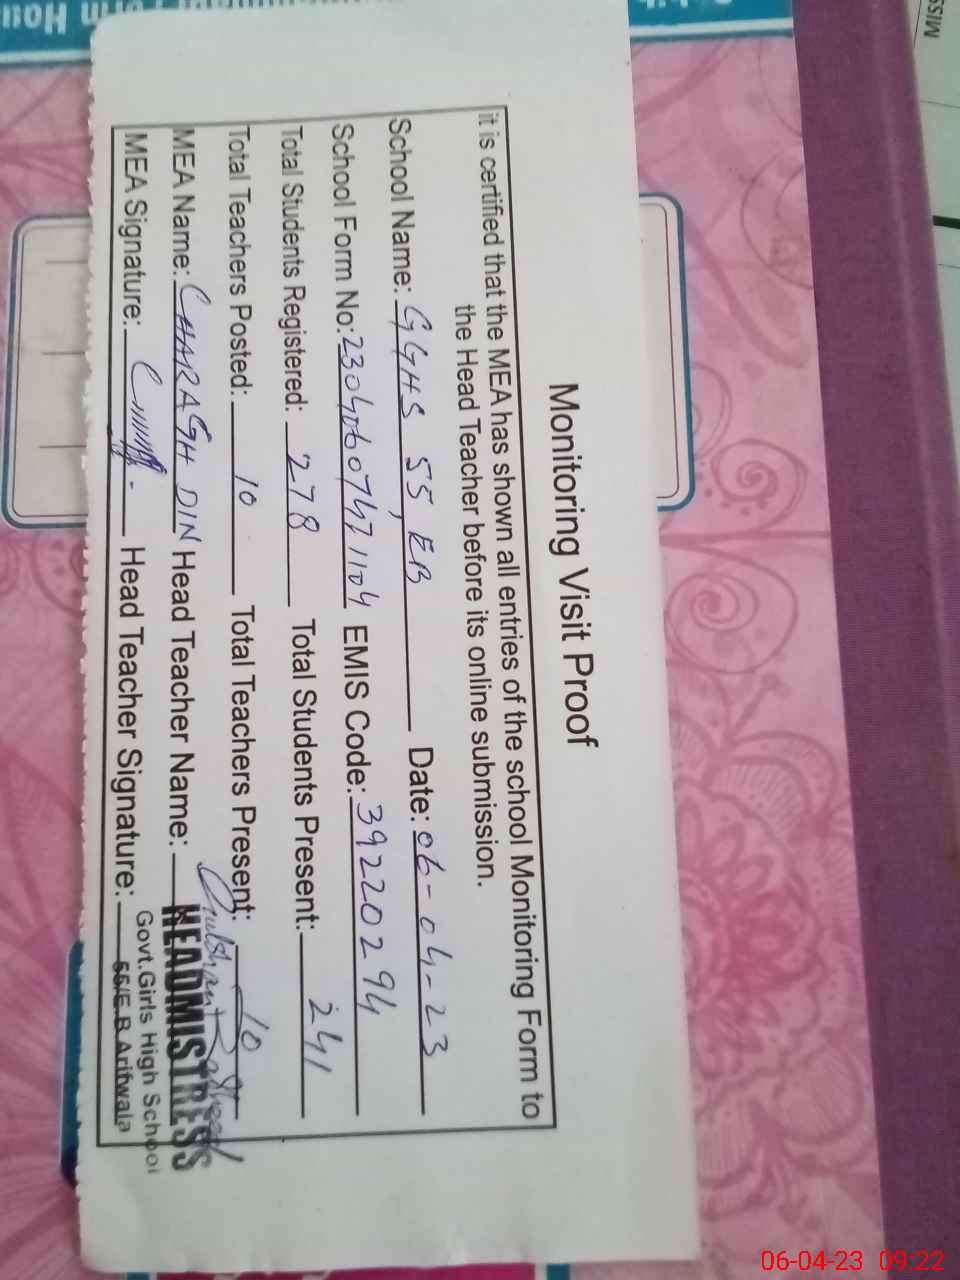 Monitoring Visit Proof
it is certified that the MEA has shown all entries of the school Monitoring Form to
the Head Teacher before its online submission.
School Name: GGHS 55, EB Date: 06-04-23
School Form No: EMIS Code: 39220294
Total Students Registered: 278 Total Students Present: 241
Total Teachers Posted: 10 Total Teachers Present: 10
MEA Name: CHARAGH DIN Head Teacher Name:
HEADMISTRESS
MEA Signature: Head Teacher Signature:
Govt.Girls High School
55/E.B Arifwala
06-04-23 09:22